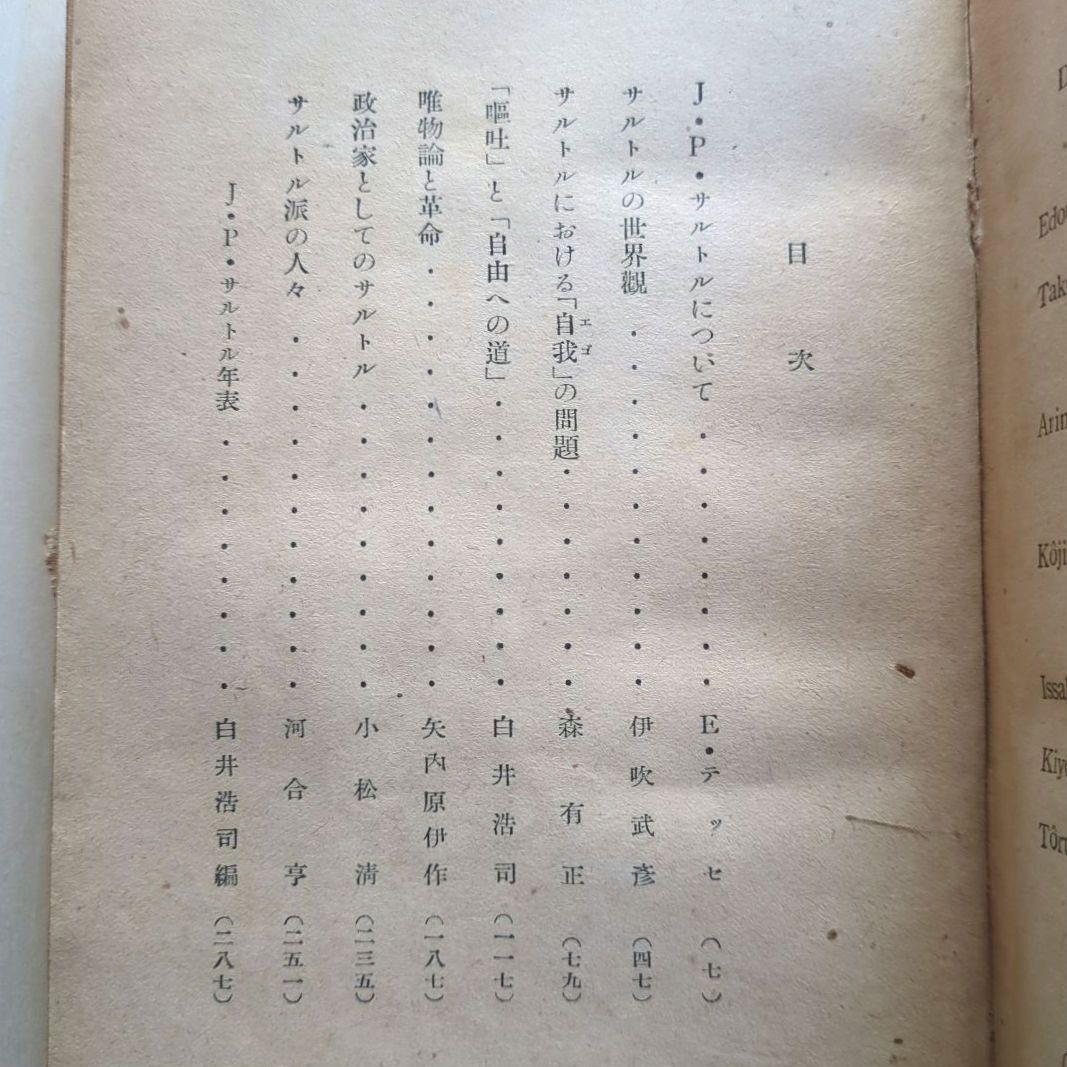 目次
J・P・サルトルについて・・・・・・・・E・テッセ（七）
サルトルの世界觀・・・・・・・・・・・伊吹武彥（四七）
サルトルにおける「自我」の問題・・・・・・・森有正（七九）
エゴ
「嘔吐」と「自由への道」・・・・・・・・・白井浩司（一一七）
唯物論と革命・・・・・・・・・・・・・矢内原伊作（一八七）
政治家としてのサルトル・・・・・・・・・小松淸（二三五）
サルトル派の人々・・・・・・・・・・・河合亨（二五一）
J・P・サルトル年表・・・・・・・・白井浩司編（二八七）
Edou
Tak
Arin
Kôji
Issa
Kiyo
Tôru